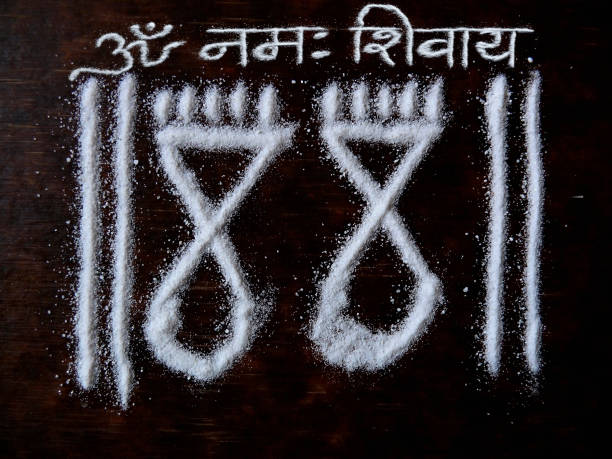 ॐ नमः शिवाय.